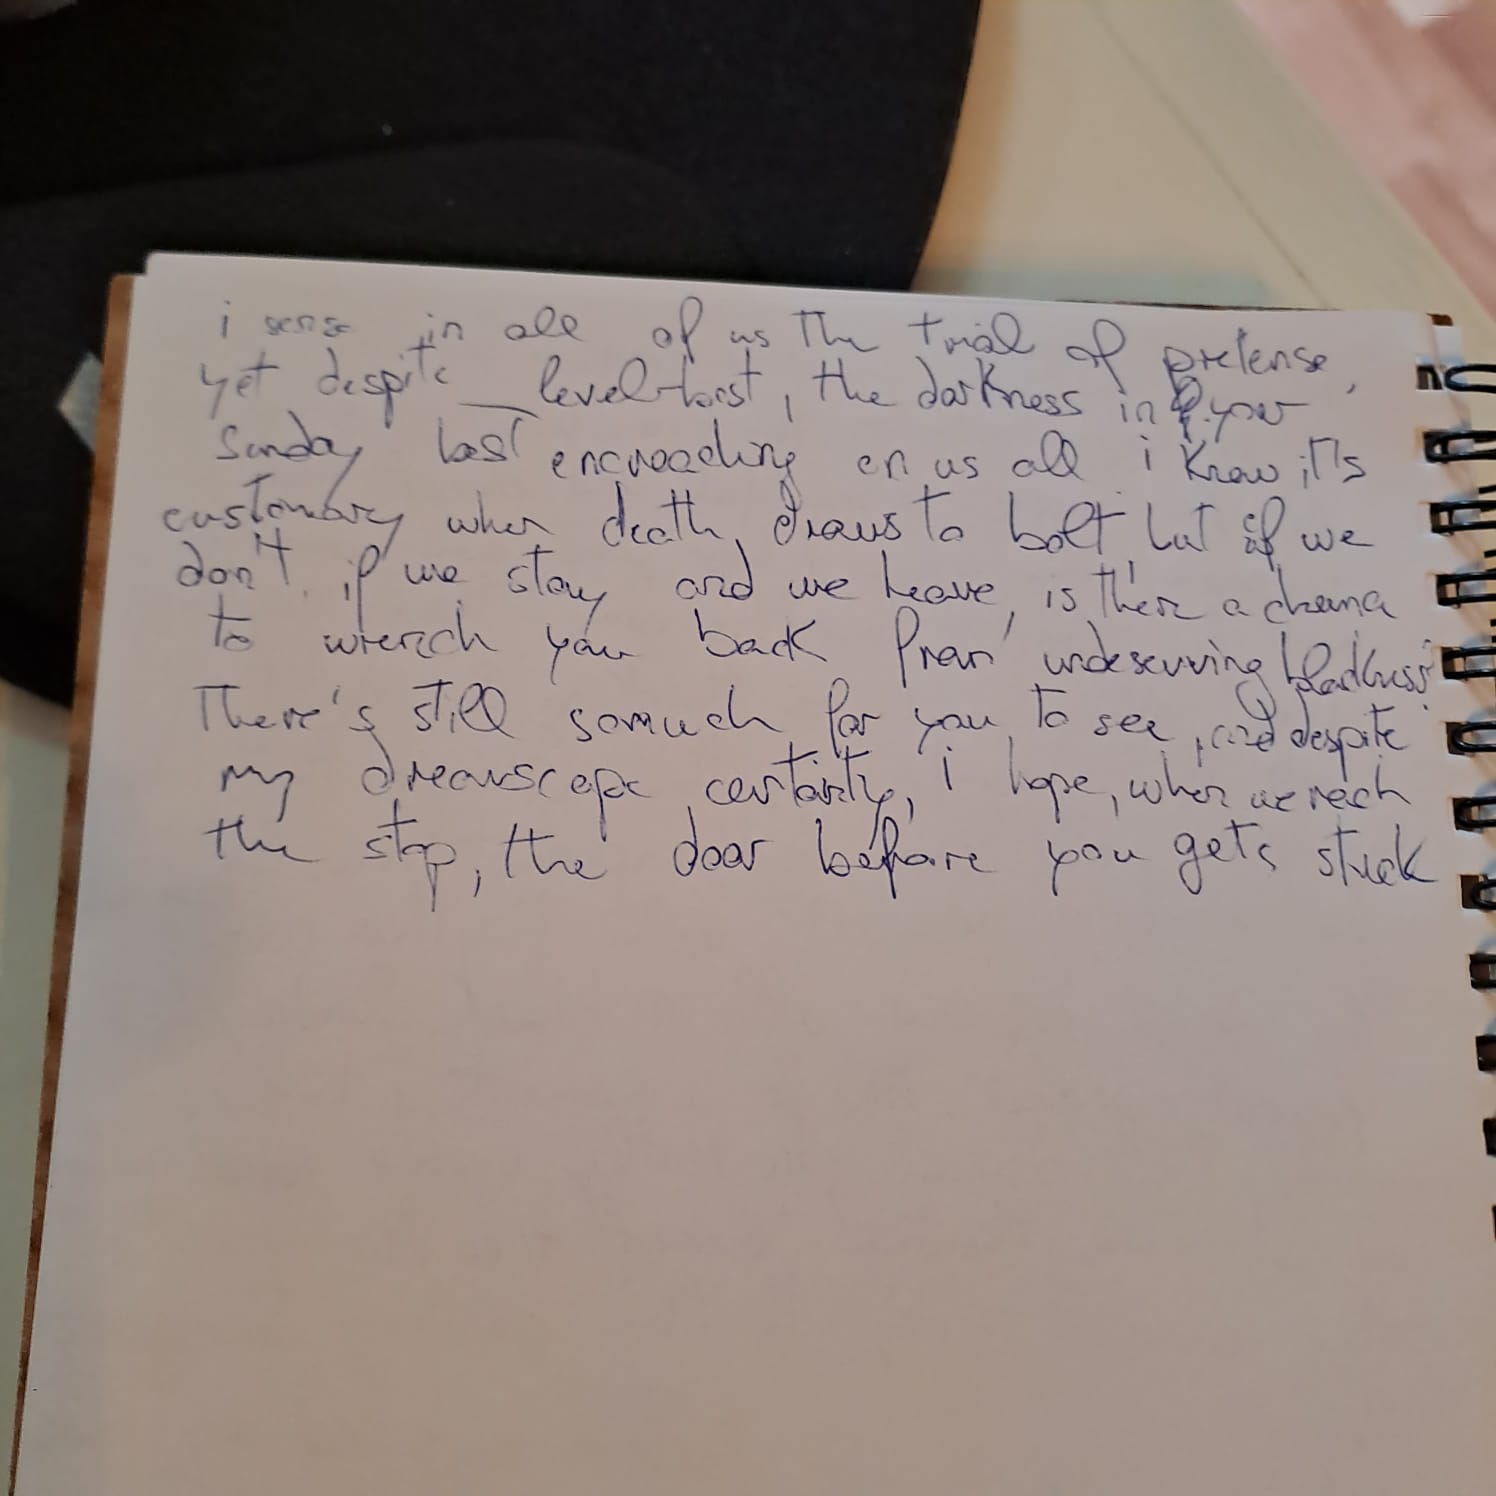 i sense in all of us the trial of pretense,
yet despite level-best, the darkness in your
Sunday best encroaching on us all i know it's
customary when death draws to bolt, but if we
don't, if we stay and we heave, is there a chance
to wrench you back from undeserving blackness?
There's still so much for you to see, and despite
my dreamscape certainty, i hope, when we reach
the stop, the door before you gets stuck